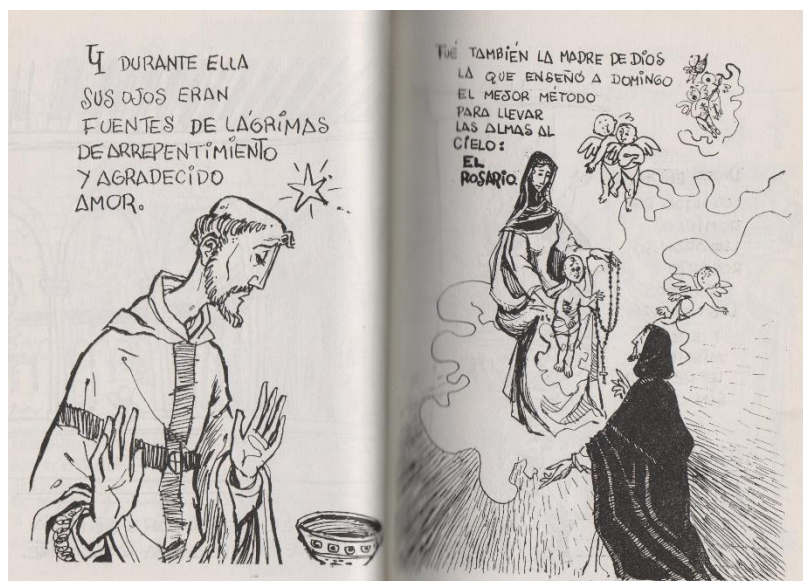 Y DURANTE ELLA
SUS OJOS ERAN
FUENTES DE LÁGRIMAS
DE ARREPENTIMIENTO
Y AGRADECIDO
AMOR.
FUÉ TAMBIÉN LA MADRE DE DIOS
LA QUE ENSEÑÓ A DOMINGO
EL MEJOR MÉTODO
PARA LLEVAR
LAS ALMAS AL
CIELO:
EL
ROSARIO.